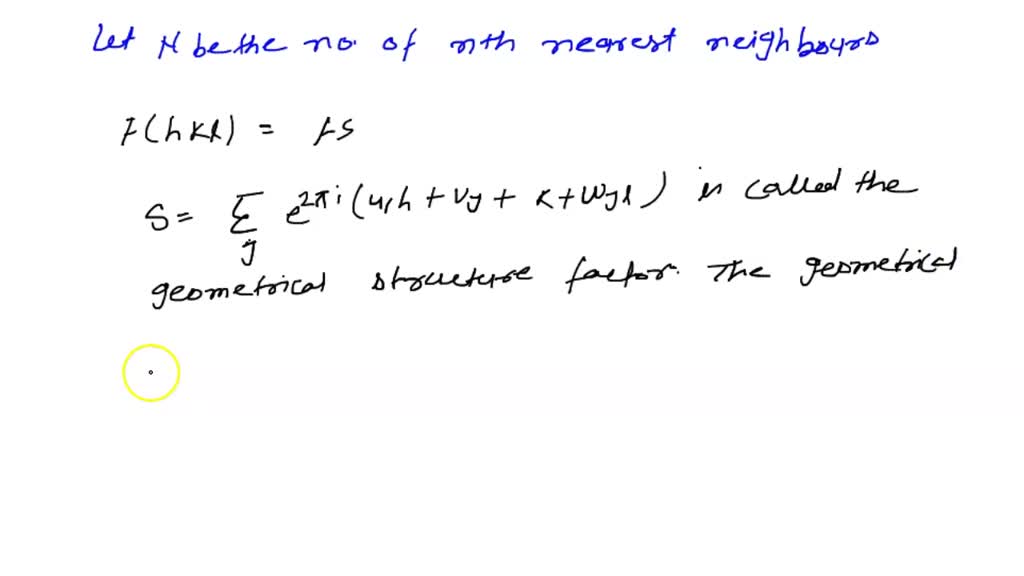 Let N be the no. of nth nearest neighbours
F(hkl) = fS
S = Σ e^2πi(ujh + vy + k + wyl) is called the
j
geometrical structure factor. The geometrical